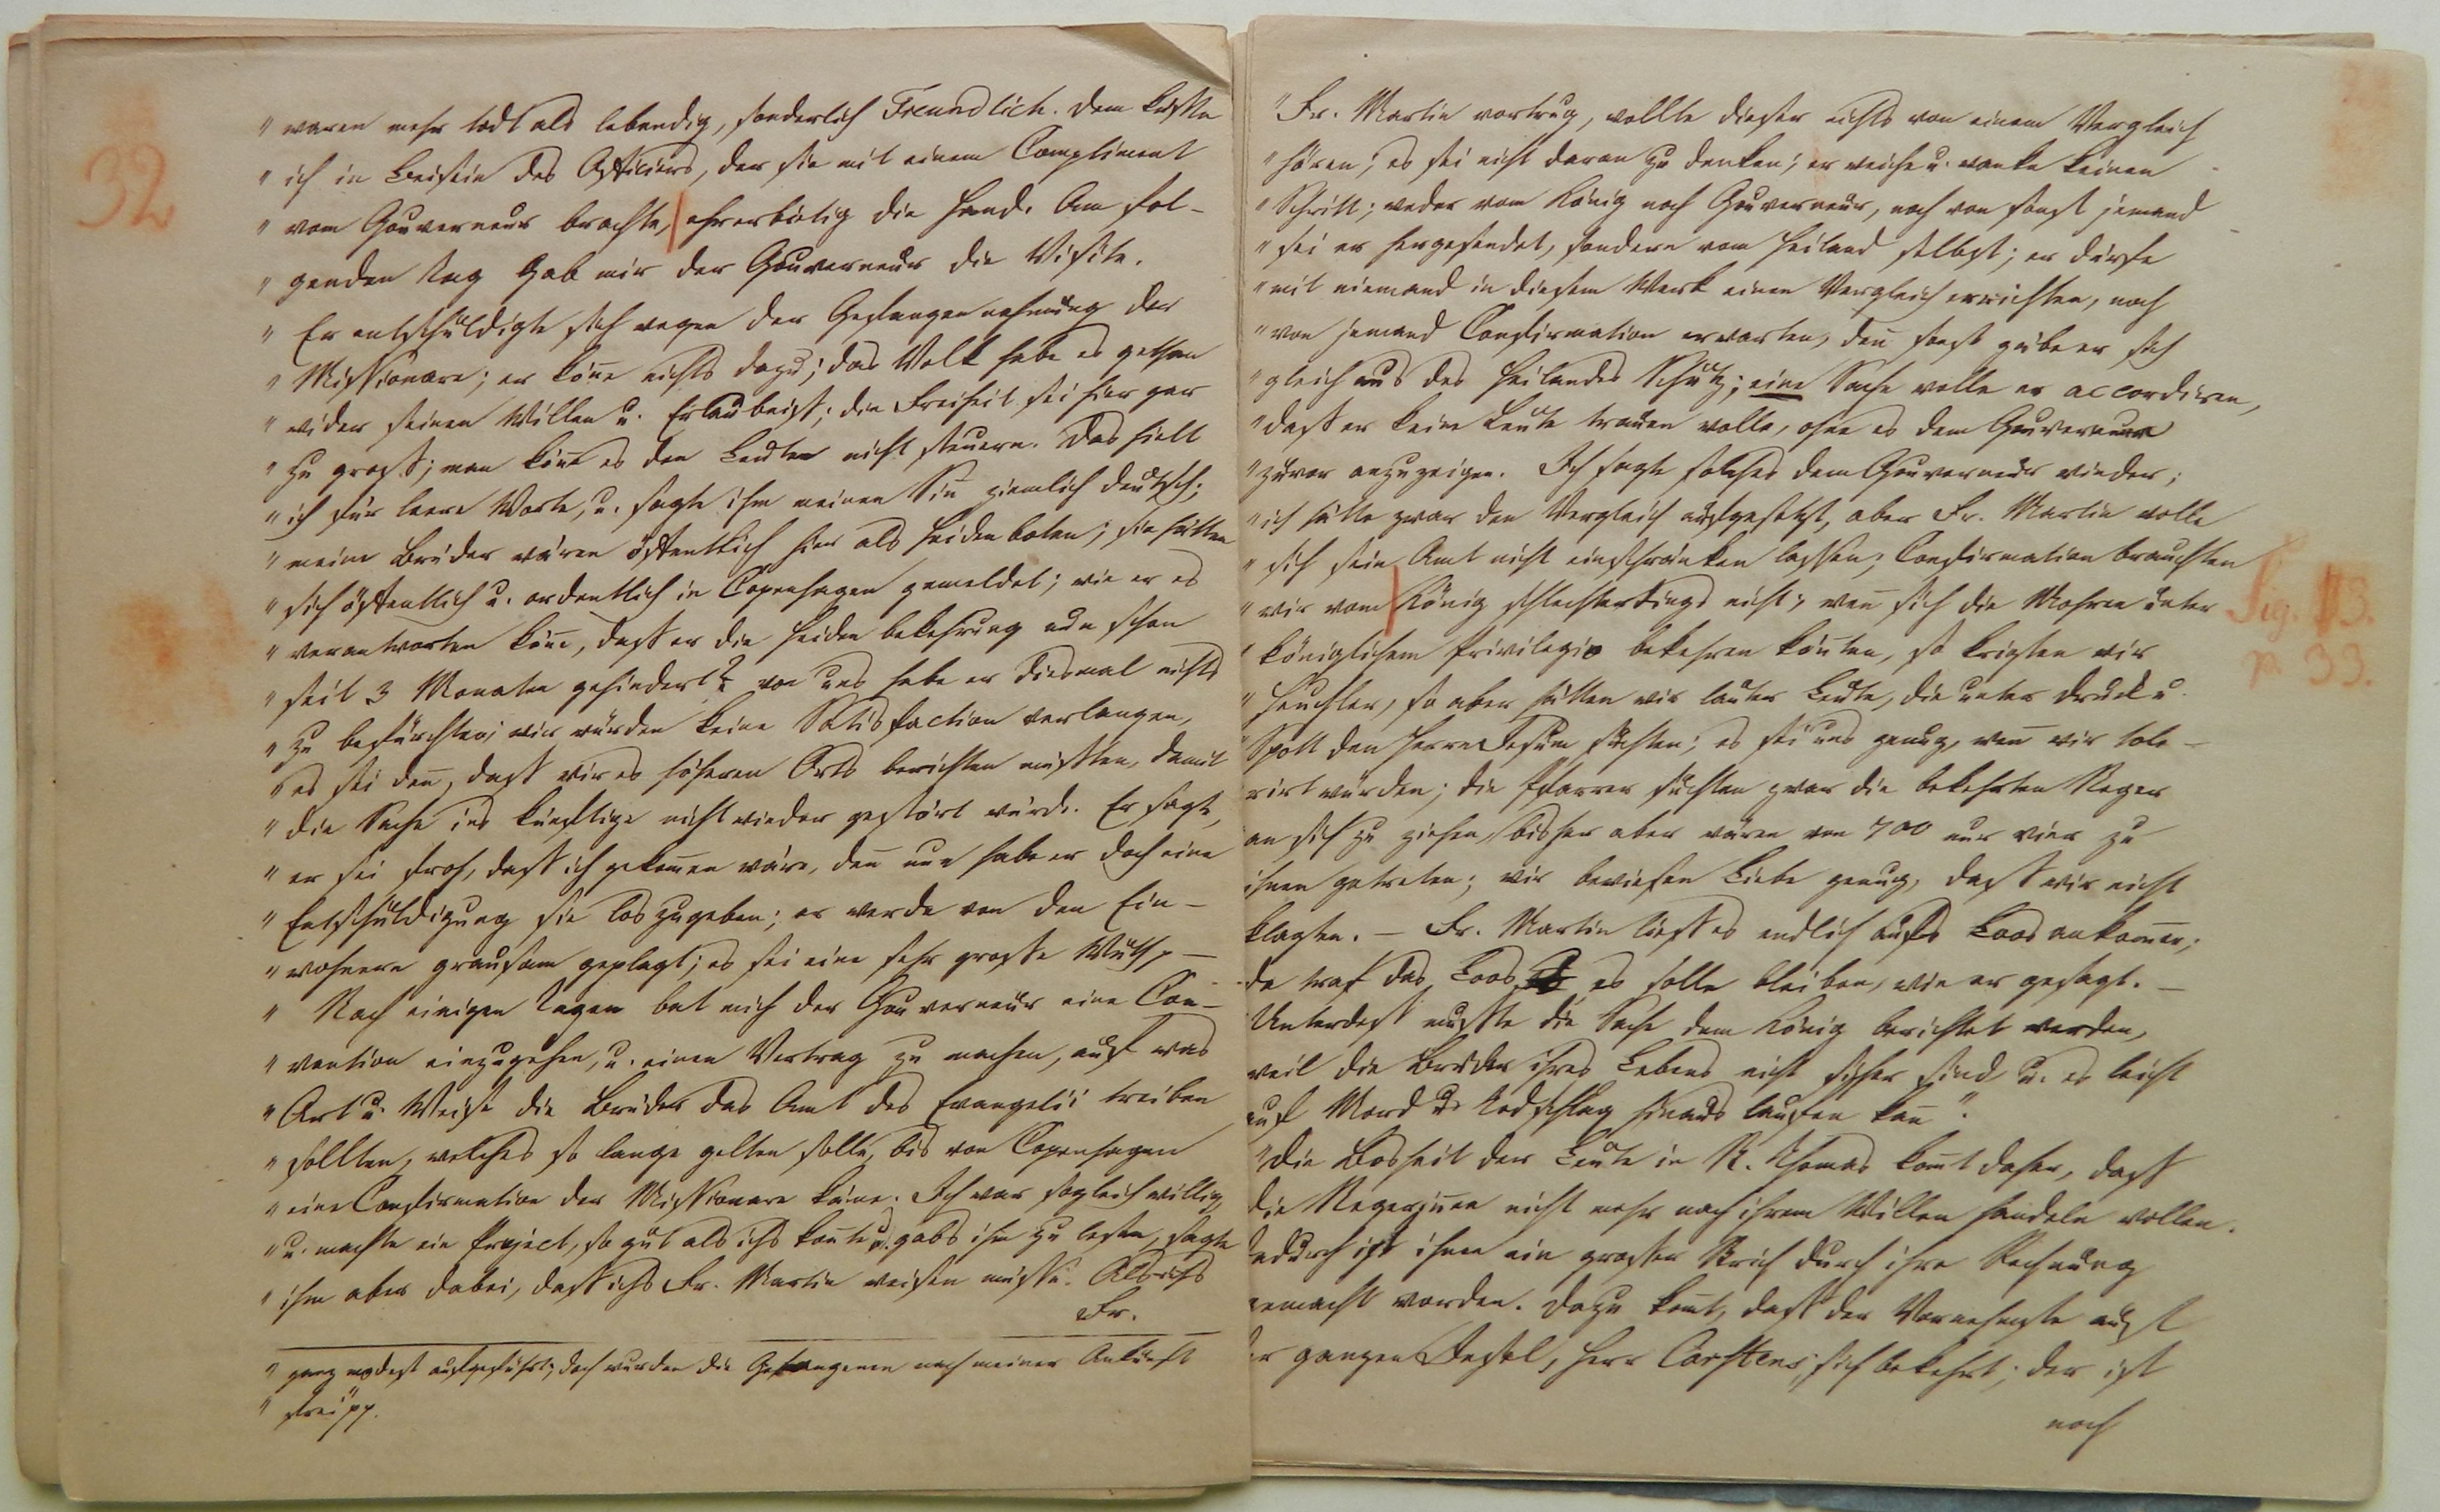 32
" waren mehr todt als lebendig, sonderlich Freundlich. Dem küßte
" ich in Beisein des Officiers, der sie mit einem Compliment
" vom Gouverneur brachte, ehrerbietig die Hand. Am fol-
" genden Tag gab mir der Gouverneur die Visite.
" Er entschuldigte sich wegen der Gefangennehmung der
" Missionare; er köne nichts dazu; das Volk habe es gethan
" wider seinen Willen u. Erlaubniß; die Freiheit sei hier gar
" zu groß; man köne es den Leuten nicht steuern. Das hielt
" ich für leere Worte, u. sagte ihm meinen Sin ziemlich deutsch;
" meine Brüder wären öffentlich hier als Heidenboten; sie hätten
" sich öffentlich u. ordentlich in Copenhagen gemeldet; wie er es
" verantworten köne, daß er die Heiden bekehrung nun schon
" seit 3 Monaten gehindert? von uns habe er diesmal nichts
" zu befürchten; wir würden keine Satisfaction verlangen,
" es sei den, daß wir es höheren Orts berichten müßten, damit
" die Sache ins künftige nicht wieder gestört würde. Er sagte,
" er sei froh, daß ich gekomen wäre, den nun habe er doch eine
" Entschuldigung sie loszugeben; er werde von den Ein-
" wohnern grausam geplagt; es sei eine sehr große Wuth, -
" Nach einigen Tagen bat mich der Gouverneur eine Con-
" vention einzugehen, u. einen Vertrag zu machen, auf was
" Art u. Weise die Brüder das Amt des Evangelii treiben
" sollten, welches so lange gelten solle, bis von Copenhagen
" eine Confirmation der Missionare käme. Ich war sogleich willig,
" u. machte ein Project, so gut als ichs konte u. gabs ihm zu lesen, sagte
" ihm aber dabei, daß ichs Br. Martin weisen müsse. Als ichs
Br.
" ganz modest aufgeführt; doch wurden die Gefangenen nach meiner Ankunft
" frei pp.
" Br. Martin vortrug, wollte dieser nichts von einem Vergleich
" hören; es sei nicht daran zu denken; er weiche u. wanke keinen
" Schritt; weder vom König noch Gouverneur, noch von sonst jemand
" sei er hergesendet, sondern vom Heiland selbst; er dürfe
" mit niemand in diesem Werk einen Vergleich errichten, noch
" von jemand Confirmation erwarten, den sonst gäbe er sich
" gleich aus des Heilandes Schutz; eine Sache wolle er accordiren,
" daß er keine Leute trauen wolle, ohne es dem Gouverneur
" zuvor anzuzeigen. Ich sagte solches dem Gouverneur wieder;
" ich hätte zwar den Vergleich aufgesetzt, aber Br. Martin wolle
" sich sein Amt nicht einschränken lassen; Confirmation brauchten
" wir vom König schlechterdings nicht; wen sich die Mohren unter
" königlichem Privilegio bekehren könten, so kriegten wir
" Heuchler, so aber hätten wir lauter Leute, die unter Druck u.
" Spott den Herrn Jesum suchten; es sei uns genug, wen wir tole-
rirt würden; die Pfarrer suchten zwar die bekehrten Neger
an sich zu ziehen, bisher aber wären von 700 nur vier zu
ihnen getreten; wir bewiesen Liebe genug, daß wir nicht
klagten. - Br. Martin ließ es endlich aufs Loos ankomen;
da traf das Loos, es solle bleiben, wie er gesagt. -
Unterdeß mußte die Sache dem König berichtet werden,
weil die Brüder ihres Lebens nicht sicher sind u. es leicht
auf Mord u. Todschlag hinaus laufen kan".
" Die Bosheit der Leute in St. Thomas komt daher, daß
die Negerinen nicht mehr nach ihrem Willen handeln wollen.
dadurch ist ihnen ein großer Strich durch ihre Rechnung
gemacht worden. Dazu komt, daß der Vornehmste auf
der ganzen Insel, Herr Carstens, sich bekehrt; der ist
noch
33.